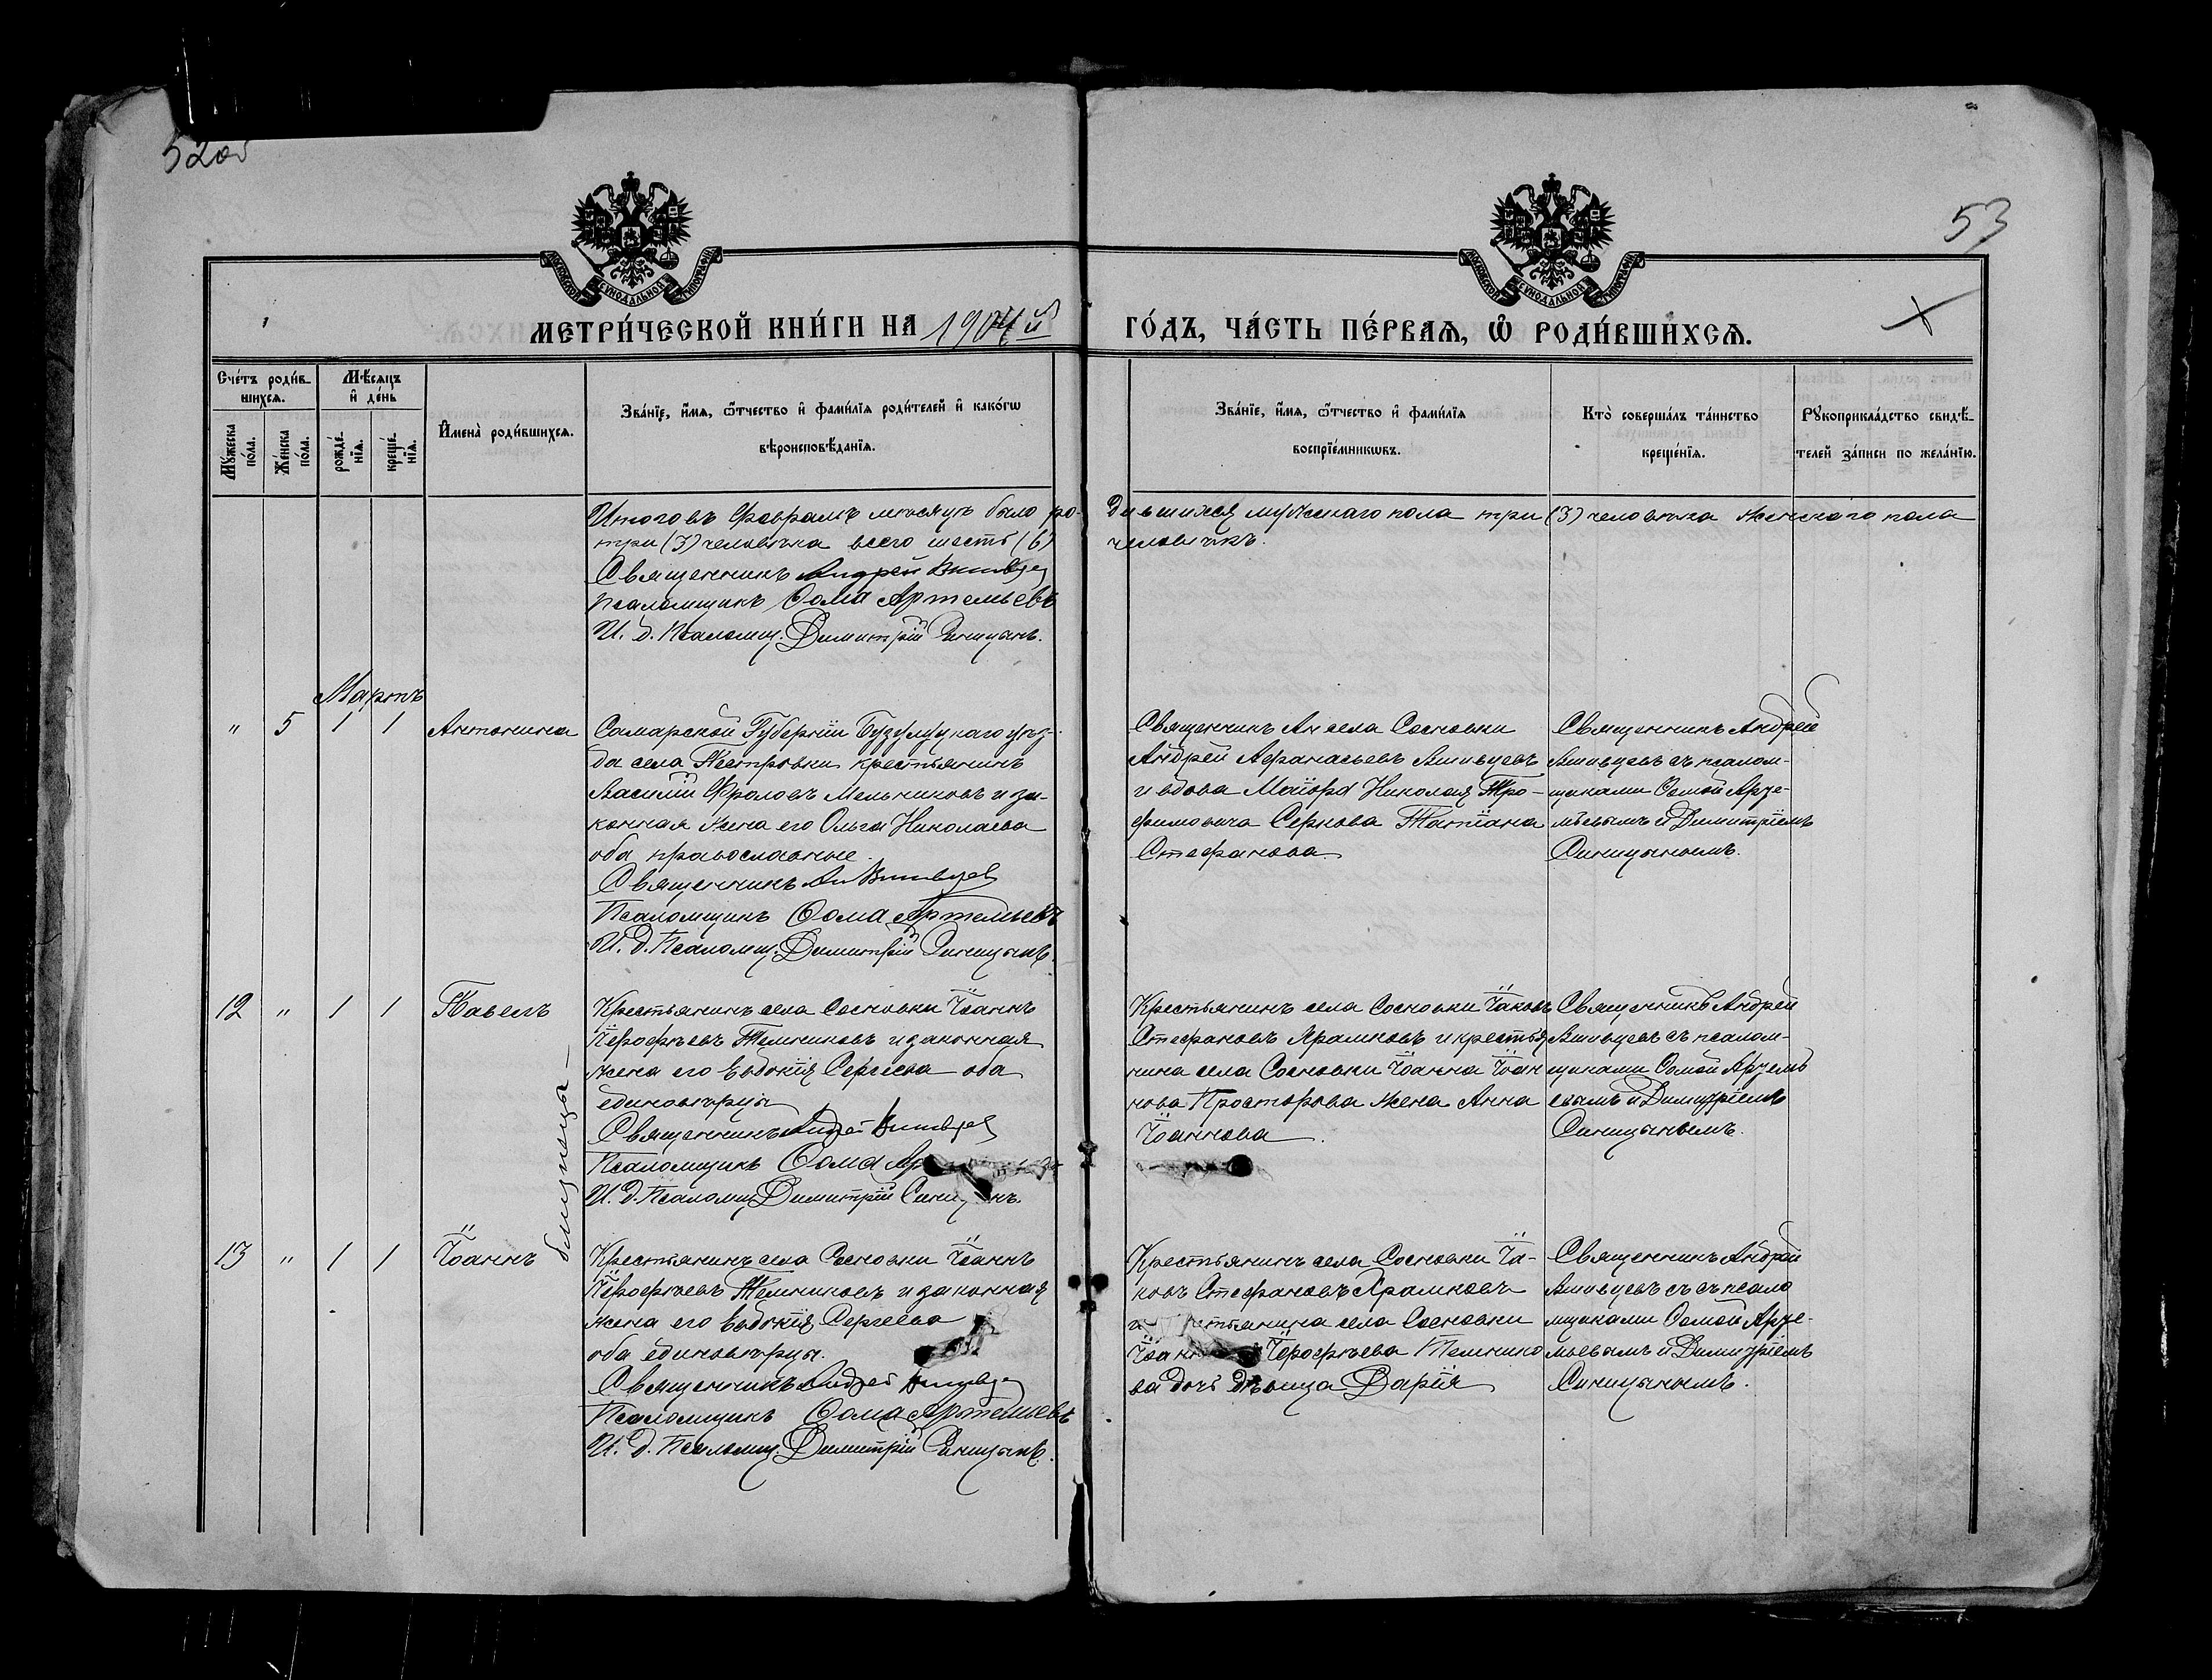 52об
53
МОСКОВСКОЙ СѴНОДАЛЬНОЙ ТИПОГРАФІИ
МОСКОВСКОЙ СѴНОДАЛЬНОЙ ТИПОГРАФІИ
МЕТРИ́ЧЕСКОЙ КНИ́ГИ НА 1904й ГО́ДЪ, ЧА́СТЬ ПЕ́РВАѦ, Ѡ҆ РОДИ́ВШИХСѦ.
Сче́тъ роди́вшихсѧ.
Мꙋ́жеска по́ла.
Же́нска по́ла.
Мѣ́сѧцъ и҆ де́нь
рожде́нїѧ.
креще́нїѧ.
И҆мена̀ роди́вшихсѧ.
Зва́нїе, и҆́мѧ, ѻ҆́тчество и҆ фами́лїѧ роди́телей и҆ како́гѡ
вѣроисповѣ́данїѧ.
Зва́нїе, и҆́мѧ, ѻ҆́тчество и҆ фами́лїѧ
воспрїе́мникѡвъ.
Кто̀ соверша́лъ та́инство
креще́нїѧ.
Рꙋкоприкла́дство свидѣ́-
телей за́писи по жела́нїю.
Итого въ Февралѣ мѣсяцѣ было ро-
дившихся мужескаго пола три (3) человѣка женскаго пола
три (3) человѣка всего шесть (6)
человѣкъ.
Священникъ Андрей
Псаломщикъ Ѳома Артемьевъ
И. д. Псаломщ. Димитрій Синицынъ.
Мартъ
" 5 1 1 Антонина
Самарской Губерніи Бузулуцкаго уѣз-
да села Пестровки крестьянинъ
Василій Фроловъ Мельниковъ и за-
конная жена его Ольга Николаева
оба православные.
Священникъ Ан
Псаломщикъ Ѳома Артемьевъ
И. д. Псаломщ. Димитрій Синицынъ.
Священникъ села Сосновки
Андрей Аѳанасьевъ
и вдова Маіора Николая Тро-
фимовича Серкова Татіана
Стефанова.
Священникъ Андрей
съ псалом-
щиками Ѳомой Арте-
мьевымъ и Димитріемъ
Синицынымъ.
12 " 1 1 Павелъ
близнецы
Крестьянинъ села Сосновки Іоаннъ
Іерофѣевъ Темниковъ и законная
жена его Евдокія Сергѣева оба
единовѣрцы
Священникъ Андрей
Псаломщикъ Ѳома Ар
И. д. Псаломщ. Димитрій Синицынъ.
Крестьянинъ села Сосновки Іаковъ
Стефановъ Храмковъ и крестья
нина села Сосновки Іоанна Іоан
нова Просторова жена Анна
Іоаннова.
Священникъ Андрей
съ псалом-
щиками Ѳомой Артемь
евымъ и Димитріемъ
Синицынымъ.
13 " 1 1 Іоаннъ
Крестьянинъ села Сосновки Іоаннъ
Іерофѣевъ Темниковъ и законная
жена его Евдокія Сергѣева
оба единовѣрцы.
Священникъ Андрей
Псаломщикъ Ѳома Артемьевъ
И. д. Псаломщ. Димитрій Синицынъ.
Крестьянинъ села Сосновки Іа-
ковъ Стефановъ Храмковъ
и села Сосновки
Іерофѣева Темнико
ва дочь дѣвица Дарія
Священникъ Андрей
съ псало
мщиками Ѳомой Арте-
мьевымъ и Димитріемъ
Синицынымъ.